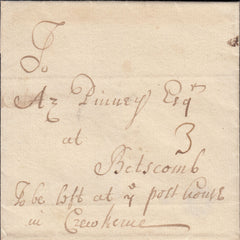 To
Az Pinney Esqr
at 3
Bitscomb
To be left at ye post house
in Crewkerne